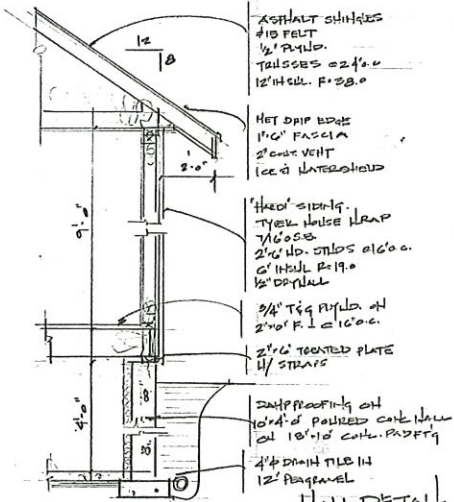 12
8
ASPHALT SHINGLES
#15 FELT
1/2" PLYWD.
TRUSSES @ 24" o.c.
12" INSUL. R=38.0
MET DRIP EDGE
1"x6" FASCIA
2" CONT. VENT
ICE & WATERSHIELD
2'-0"
"HARDI" SIDING.
TYVEK HOUSE WRAP
7/16" O.S.B.
2"x6" WD. STUDS @ 16" O.C.
6" INSUL R=19.0
1/2" DRYWALL
9'-0"
3/4" T&G PLYWD. ON
2"x10" F.J. @ 16" O.C.
2"x6" TREATED PLATE
W/ STRAPS
8"
4'-0"
DAMPPROOFING ON
10"x4'-0" POURED CONC. WALL
ON 18"x10" CONC. PAD FT'G
4"ϕ DRAIN TILE IN
12" PEAGRAVEL
WALL DETAIL